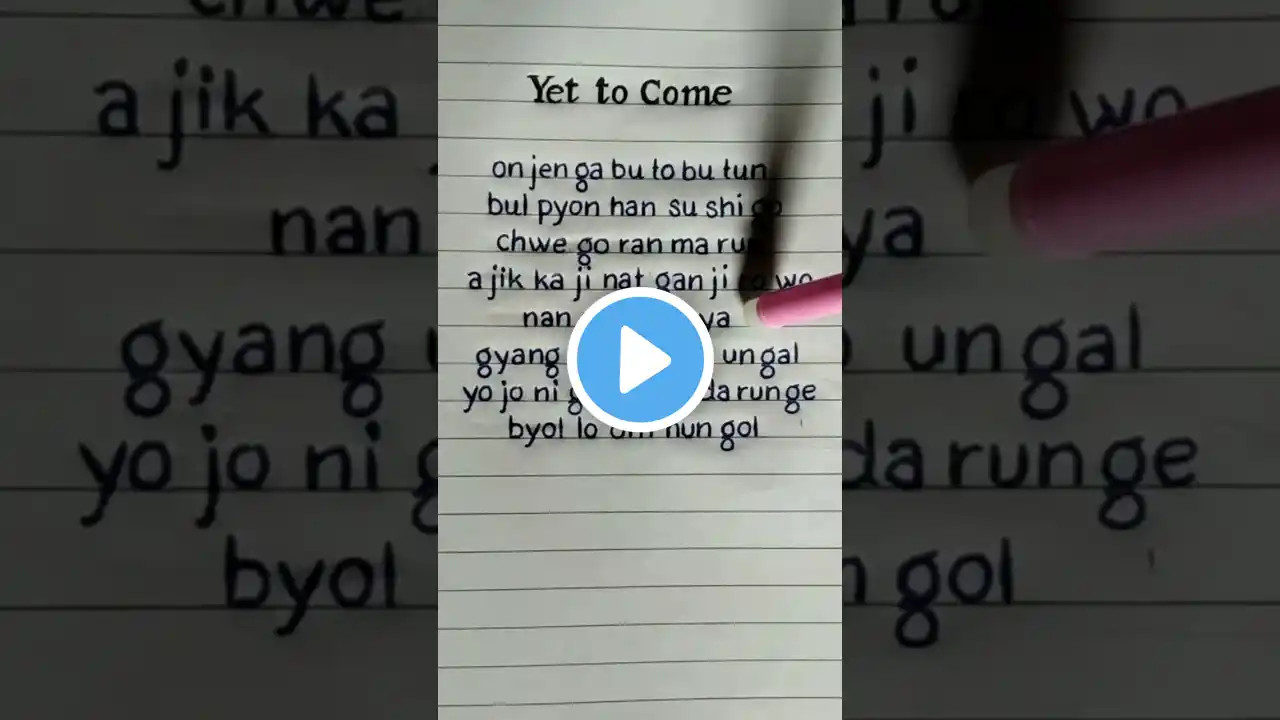 Yet to Come
on jen ga bu to bu tun
bul pyon han su shi go
chwe go ran ma run
a jik ka ji nat gan ji wo
nan ya
gyang un gal
yo jo ni da run ge
byol lo nun gol